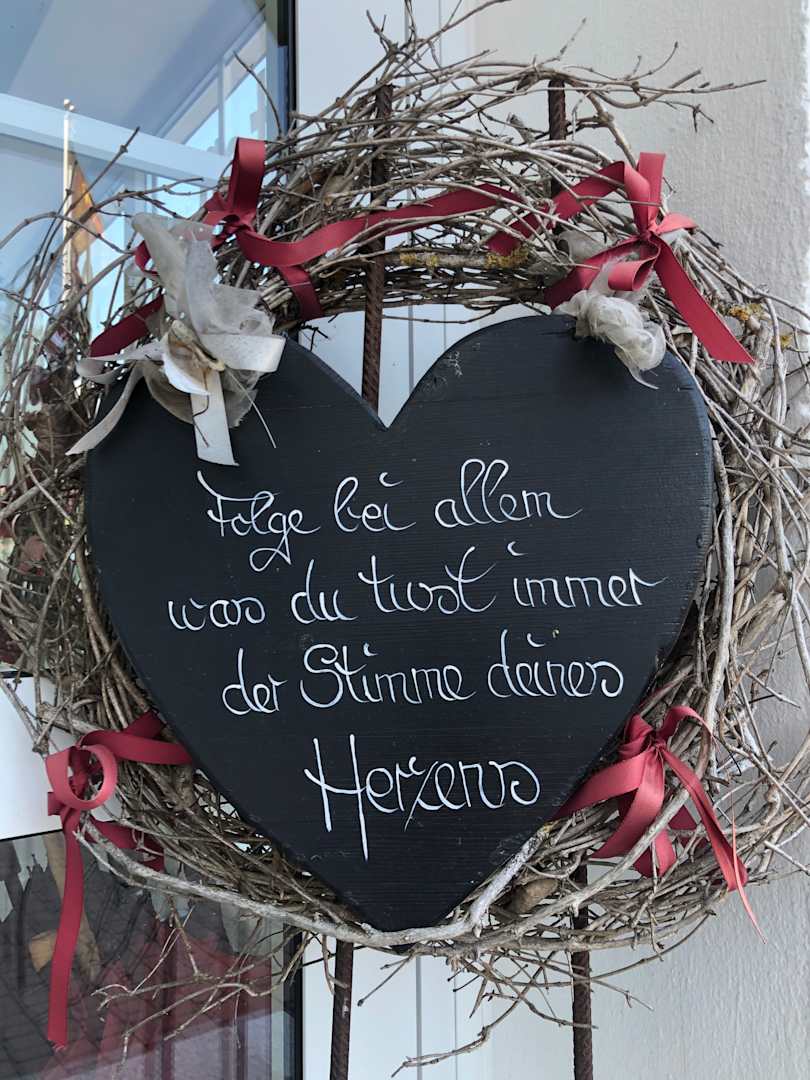 Folge bei allem
was du tust immer
der Stimme deines
Herzens